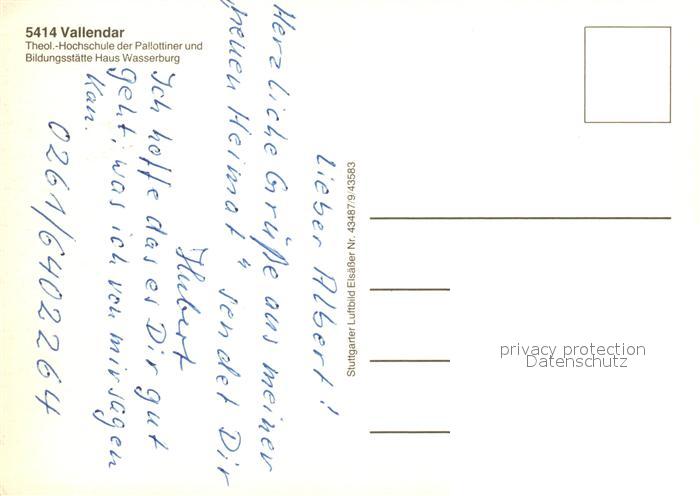 5414 Vallendar
Theol.-Hochschule der Pallottiner und
Bildungsstätte Haus Wasserburg
Lieber Albert!
Herzliche Grüße aus meiner
„neuen Heimat“ sendet Dir
Hubert
Ich hoffe das es Dir gut
geht, was ich von mir sagen
kan.
0261/6402264
Stuttgarter Luftbild Elsäßer Nr. 43487/9/43583
privacy protection
Datenschutz